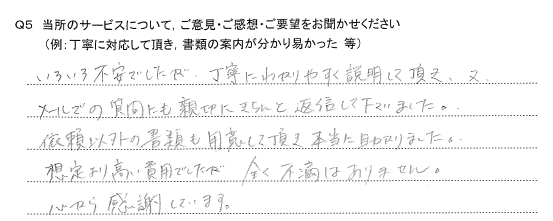 Q5 当所のサービスについて，ご意見・ご感想・ご要望をお聞かせください
（例：丁寧に対応して頂き，書類の案内が分かり易かった 等）
いろいろ不安でしたが、丁寧にわかりやすく説明して頂き、又、
メールでの質問にも親切にきちんと返信して下さいました。
依頼以外の書類も用意して頂き本当に助かりました。
想定より高い費用でしたが 全く不満はありません。
心から感謝しています。